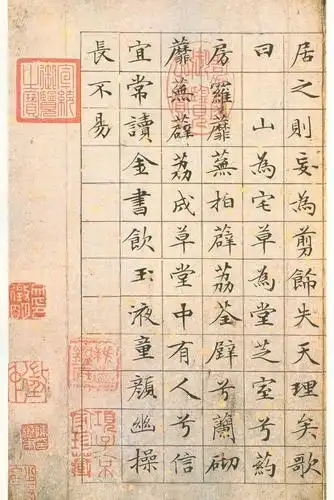 居之則妄為剪飾失天理矣歌
曰山為宅草為堂芝室兮葯
房蘿蘼蕪拍薜荔荃壁兮蘭砌
蘼蕪薜荔成草堂中有人兮信
宜常讀金書飲玉液童顏幽操
長不易
宣統御覽之寶
項子京家珍藏